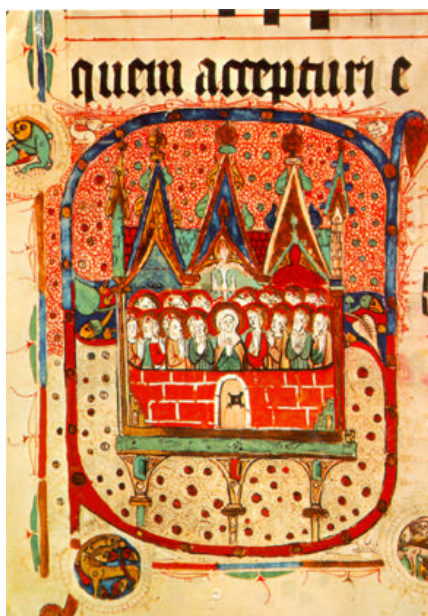 quem accepturi e